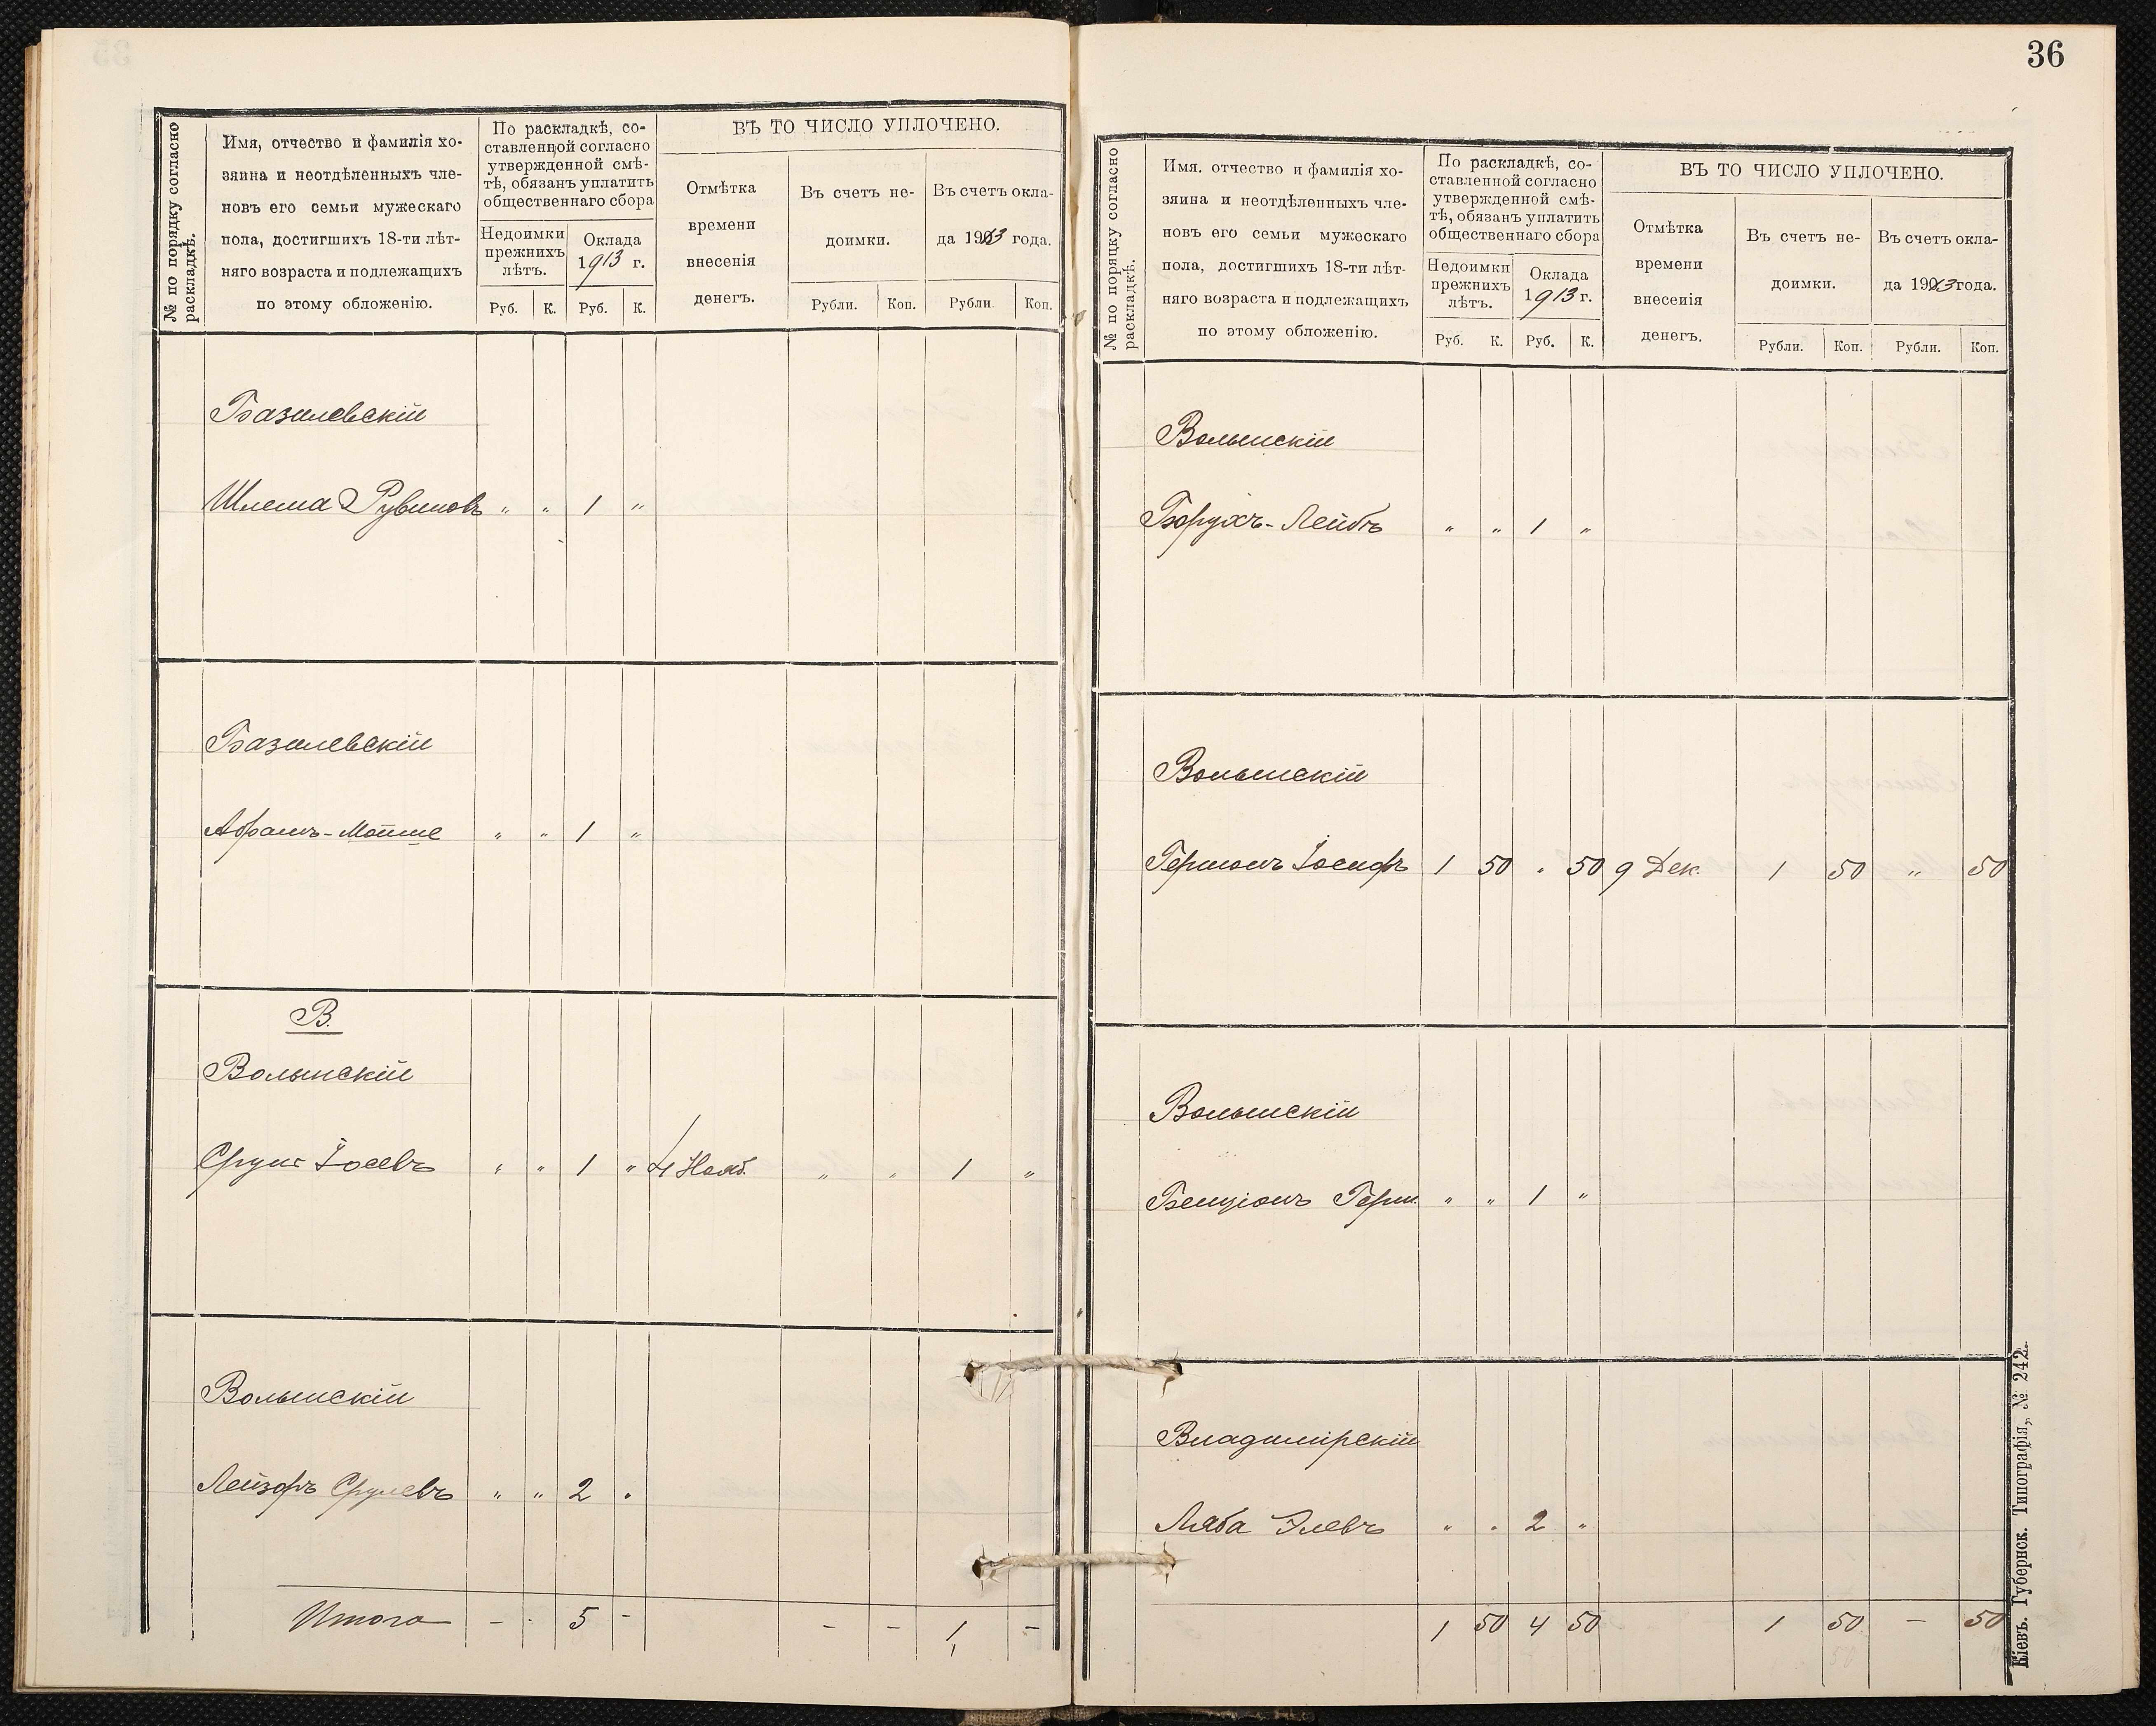 № по порядку согласно
раскладкѣ.
Имя, отчество и фамилія хо-
зяина и неотдѣленныхъ чле-
новъ его семьи мужескаго
пола, достигшихъ 18-ти лѣт-
няго возраста и подлежащихъ
по этому обложенію.
По раскладкѣ, со-
ставленной согласно
утвержденной смѣ-
тѣ, обязанъ уплатить
общественнаго сбора
Недоимки
прежнихъ
лѣтъ.
Оклада
1913 г.
Руб. К. Руб. К.
ВЪ ТО ЧИСЛО УПЛОЧЕНО.
Отмѣтка
времени
внесенія
денегъ.
Въ счетъ не-
доимки.
Въ счетъ окла-
да 1913 года.
Рубли. Коп. Рубли Коп.
Базилевскій
Шлема Рувиновъ " " 1 "
Базилевскій
Абрамъ-Мошне " " 1 "
В.
Волынскій
Сруль Іосевъ " " 1 " 4 Нояб. " " 1 "
Волынскій
Лейзоръ Срулевъ " " 2 "
Итого - - 5 - - - 1 -
36
№ по порядку согласно
раскладкѣ.
Имя. отчество и фамилія хо-
зяина и неотдѣленныхъ чле-
новъ его семьи мужескаго
пола, достигшихъ 18-ти лѣт-
няго возраста и подлежащихъ
по этому обложенію.
По раскладкѣ, со-
ставленной согласно
утвержденной смѣ-
тѣ, обязанъ уплатить
общественнаго сбора
Недоимки
прежнихъ
лѣтъ.
Оклада
1913 г.
Руб. К. Руб. К.
ВЪ ТО ЧИСЛО УПЛОЧЕНО.
Отмѣтка
времени
внесенія
денегъ.
Въ счетъ не-
доимки.
Въ счетъ окла-
да 1913 года.
Рубли. Коп. Рубли. Коп.
Волынскій
Борухъ-Лейбъ " " 1 "
Волынскій
Гершонъ Іосифъ 1 50 " 50 9 Дек. 1 50 " 50
Волынскій
Бенціонъ Герш. " " 1 "
Владимірскій
Ляба Элевъ " " 2 "
1 50 4 50 1 50 - 50
Кіевъ. Губернск. Типографія, № 242.